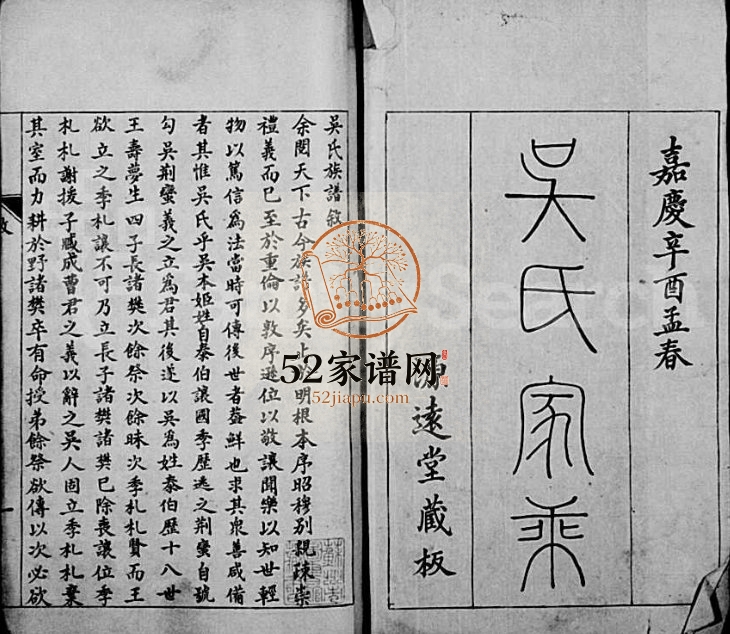 嘉慶辛酉孟春
吳氏家乘
遠堂藏板
吳氏族譜敘
余閱天下古今族譜多矣止於明根本序昭穆别親疎崇
禮義而已至於重倫以敦序遜位以敬讓聞樂以知世輕
物以篤信爲法當時可傳後世者葢鮮也求其衆善咸備
者其惟吳氏乎吳本姬姓自泰伯讓國季歷逃之荆蠻自號
勾吳荆蠻義之立爲君其後遂以吳爲姓泰伯歷十八世
王壽夢生四子長諸樊次餘祭次餘昧次季札札賢而王
欲立之季札讓不可乃立長子諸樊諸樊已除喪讓位季
札札謝援子臧成曹君之義以辭之吳人固立季札札棄
其室而力耕於野諸樊卒有命授弟餘祭欲傳以次必欲
52家谱网
52jiapu.com